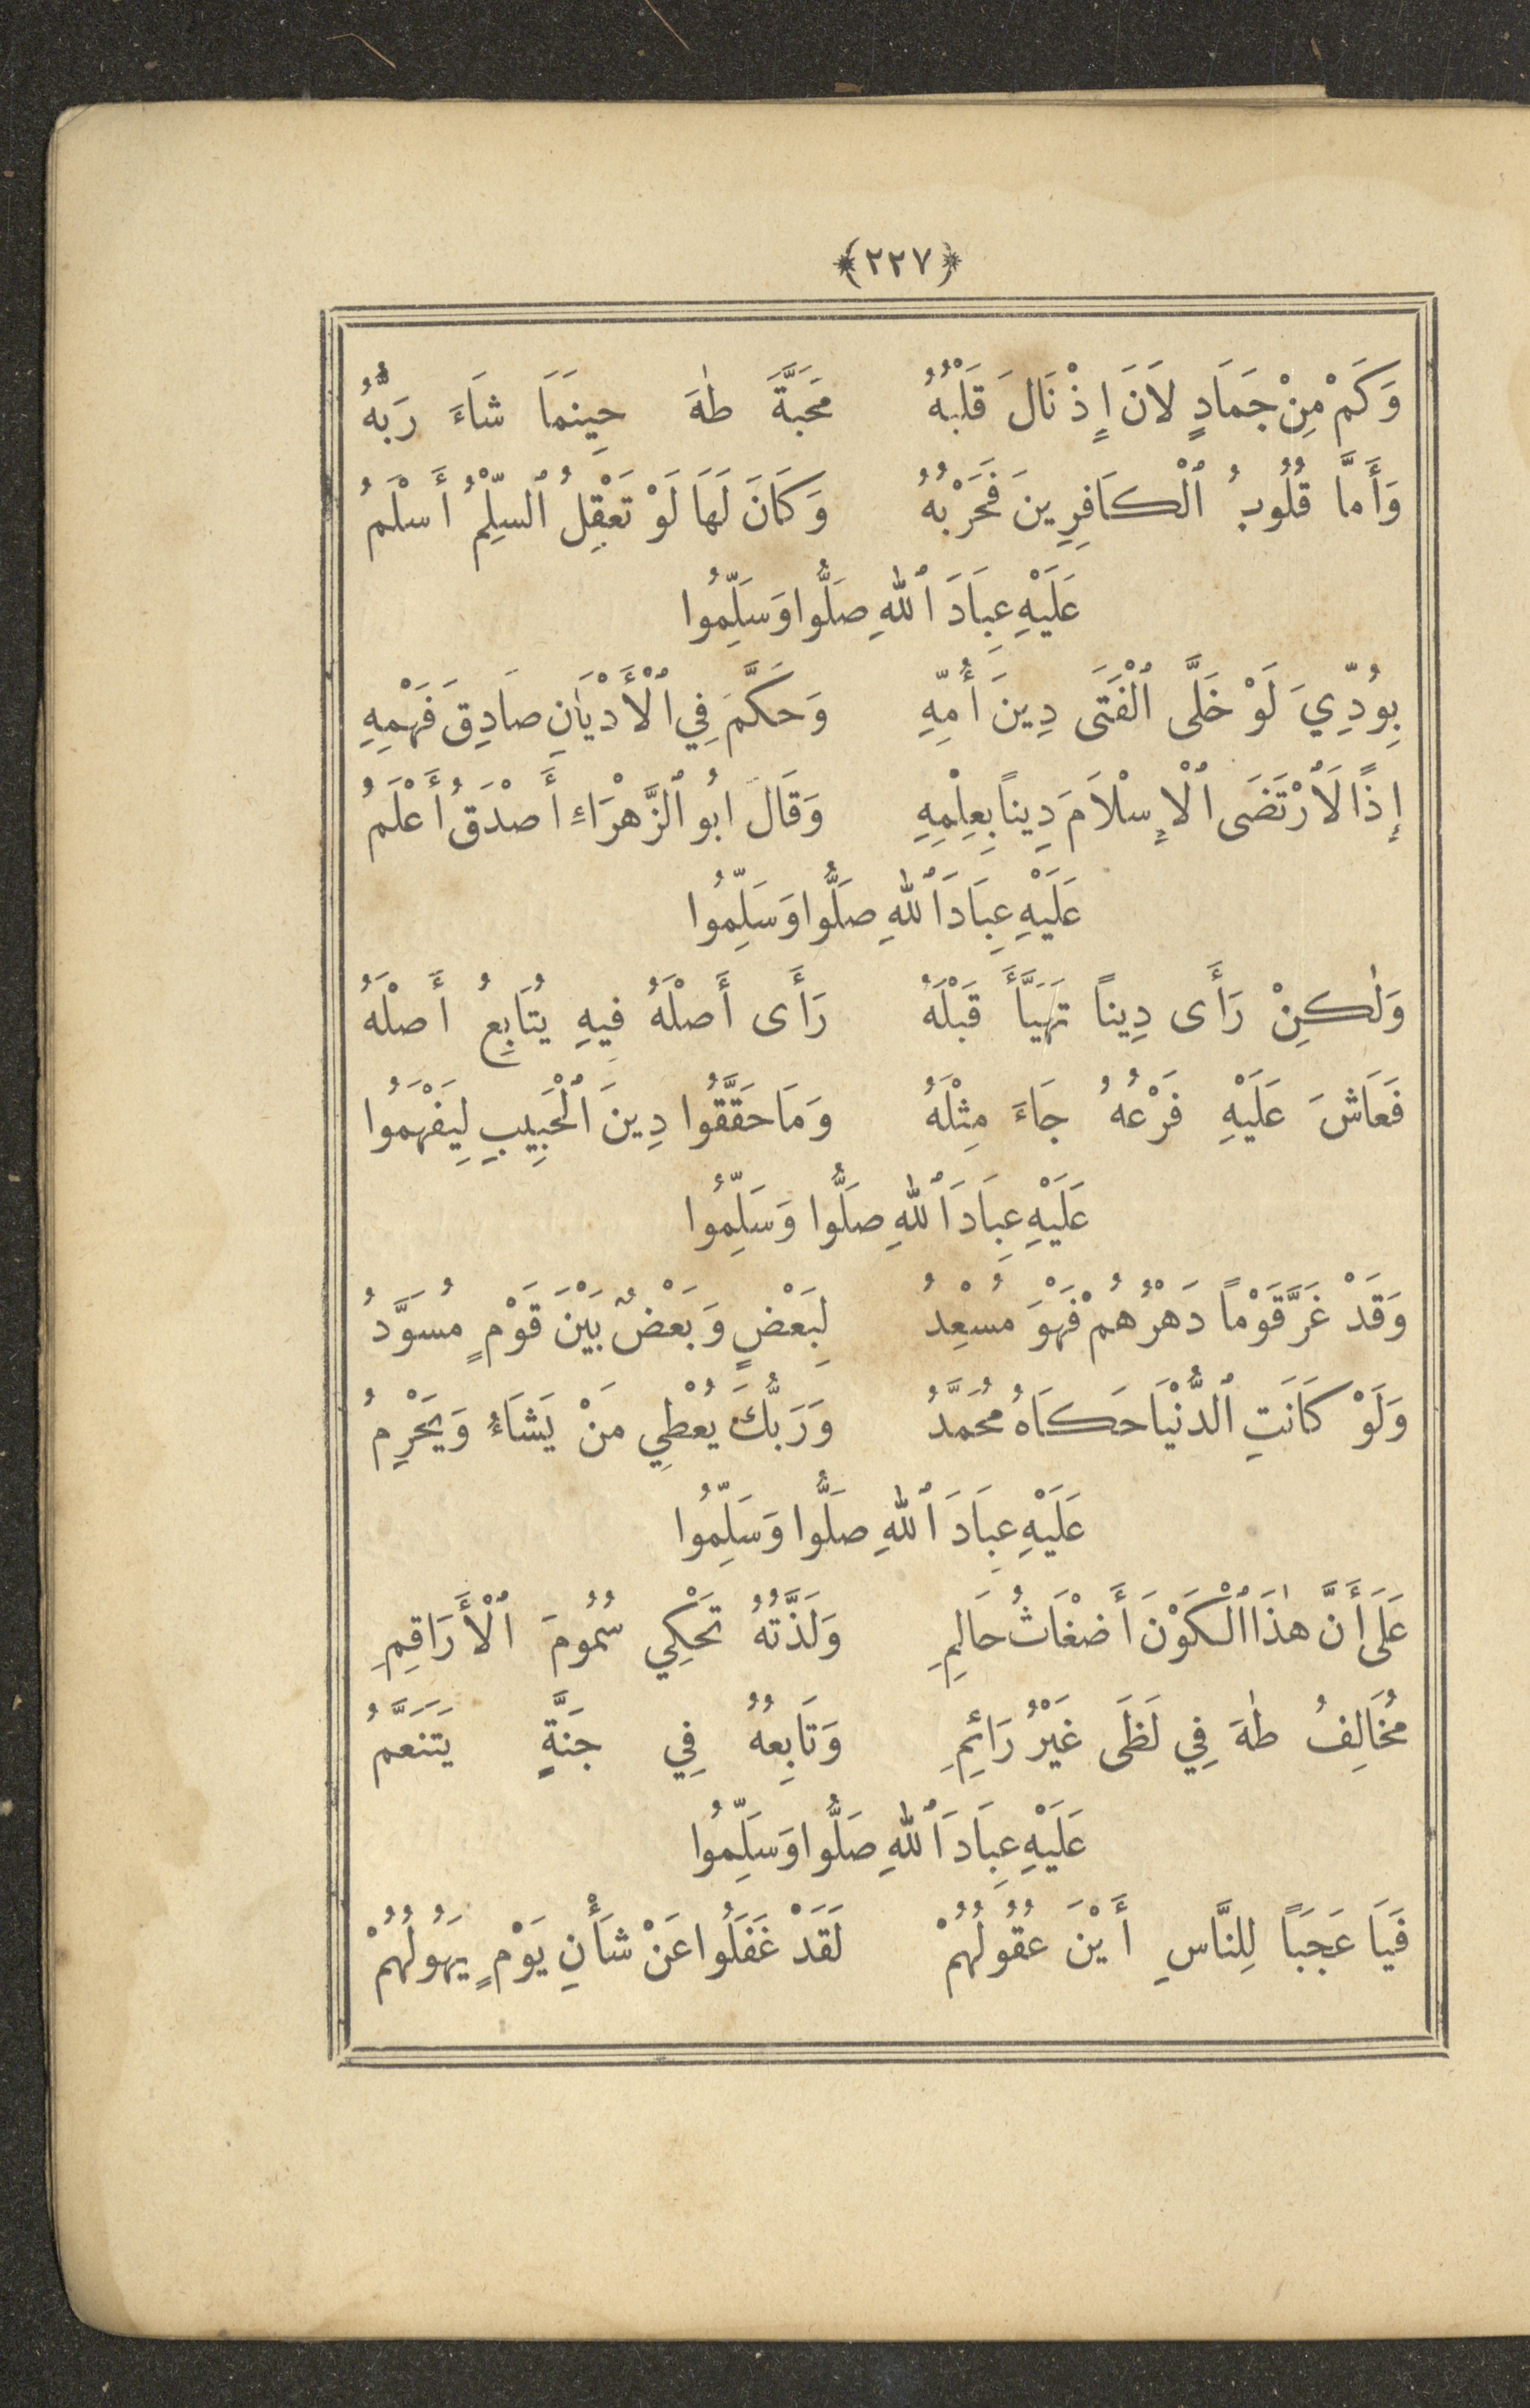 ﴿٢٢٧﴾
وَكَمْ مِنْ جَمَادٍ لَانَ إِذْ نَالَ قَلْبُهُ مَحَبَّةَ طٰهَ حِينَمَا شَاءَ رَبُّهُ
وَأَمَّا قُلُوبُ ٱلْكَافِرِينَ فَحَرْبُهُ وَكَانَ لَهَا لَوْ تَعْقِلُ ٱلسِّلْمُ أَسْلَمُ
عَلَيْهِ عِبَادَ ٱللهِ صَلُّوا وَسَلِّمُوا
بِوُدِّيَ لَوْ خَلَّى ٱلْفَتَى دِينَ أُمِّهِ وَحَكَّمَ فِي ٱلْأَدْيَانِ صَادِقَ فَهْمِهِ
إِذًا لَٱرْتَضَى ٱلْإِسْلَامَ دِينًا بِعِلْمِهِ وَقَالَ ابُو ٱلزَّهْرَاءِ أَصْدَقُ أَعْلَمُ
عَلَيْهِ عِبَادَ ٱللهِ صَلُّوا وَسَلِّمُوا
وَلٰكِنْ رَأَى دِينًا تَهَيَّأَ قَبْلَهُ رَأَى أَصْلَهُ فِيهِ يُتَابِعُ أَصْلَهُ
فَعَاشَ عَلَيْهِ فَرْعُهُ جَاءَ مِثْلَهُ وَمَا حَقَّقُوا دِينَ ٱلْحَبِيبِ لِيَفْهَمُوا
عَلَيْهِ عِبَادَ ٱللهِ صَلُّوا وَسَلِّمُوا
وَقَدْ غَرَّ قَوْمًا دَهْرُهُمْ فَهْوَ مُسْعِدُ لِبَعْضٍ وَبَعْضٌ بَيْنَ قَوْمٍ مُسَوَّدُ
وَلَوْ كَانَتِ ٱلدُّنْيَا حَكَاهُ مُحَمَّدُ وَرَبُّكَ يُعْطِي مَنْ يَشَاءُ وَيَحْرِمُ
عَلَيْهِ عِبَادَ ٱللهِ صَلُّوا وَسَلِّمُوا
عَلَى أَنَّ هٰذَا ٱلْكَوْنَ أَضْغَاثُ حَالِمِ وَلَذَّتُهُ تَحْكِي سُمُومَ ٱلْأَرَاقِمِ
مُخَالِفُ طٰهَ فِي لَظَى غَيْرُ رَائِمِ وَتَابِعُهُ فِي جَنَّةٍ يَتَنَعَّمُ
عَلَيْهِ عِبَادَ ٱللهِ صَلُّوا وَسَلِّمُوا
فَيَا عَجَبًا لِلنَّاسِ أَيْنَ عُقُولُهُمْ لَقَدْ غَفَلُوا عَنْ شَأْنِ يَوْمٍ يَهُولُهُمْ